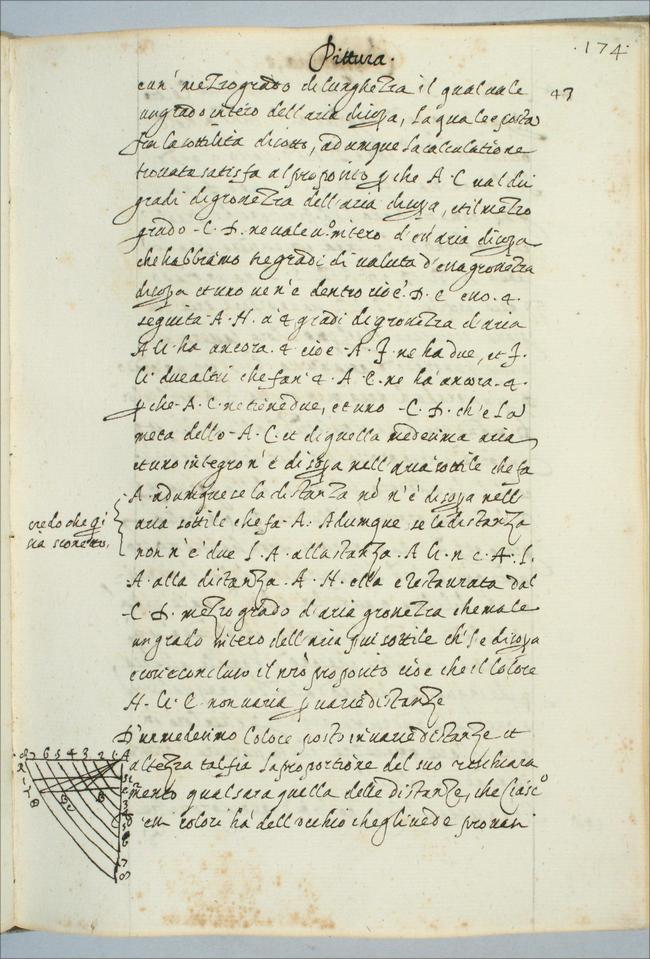 Pittura.
174
47
cun' mezzo grado di lunghezza il qual uale
un grado intero dell'aria di sopa, la quale è posta
fra la sottilità di sotto, adunque la calculatione
trouata satisfa al proposito che A. C ual dui
gradi di grossezza dell'aria di sopa, et il mezzo
grado - C. D. ne uale u.º intero d'
che habbiamo tre gradi di ualuta d'una grossezza
di sopa et uno ue n'è dentro cioè.
seguita A. H. à 4 gradi di grossezza d'aria
A G. ha ancora. 4 cioè A. F. ne ha due, et F.
G. due altri che fan' 4. A. C. ne hà ancora. 4.
che A. C. ne tiene due, et uno - C. D. ch'è la
meta dello - A. C. et di quella medesima aria
et uno integro n'è di sopa nell'aria sottile che fa
A. adumque se la distanza nō n'è di sopa nell
aria sottile che fa - A. Adumque se la distanza
credo che qi
sia scorretto,
non n'è due
A. alla distanza. A. H. ella è restaurata dal
C. D. mezzo grado d'aria grossezza che uale
un grado intero dell'aria piu sottile ch'è di sopa
e così concluso il nrō proposito cioè che il colore
H. G. C. non uaria uarie distanze
D'un medesimo Colore posto in uarie distanze et
altezza tal fia la proportione del suo rischiara
mento qual sara quella delle distanze, che Ciascº
cun colori hà dell'occhio che gli uede prouasi
8 7 6 5 4 3 2 1 A